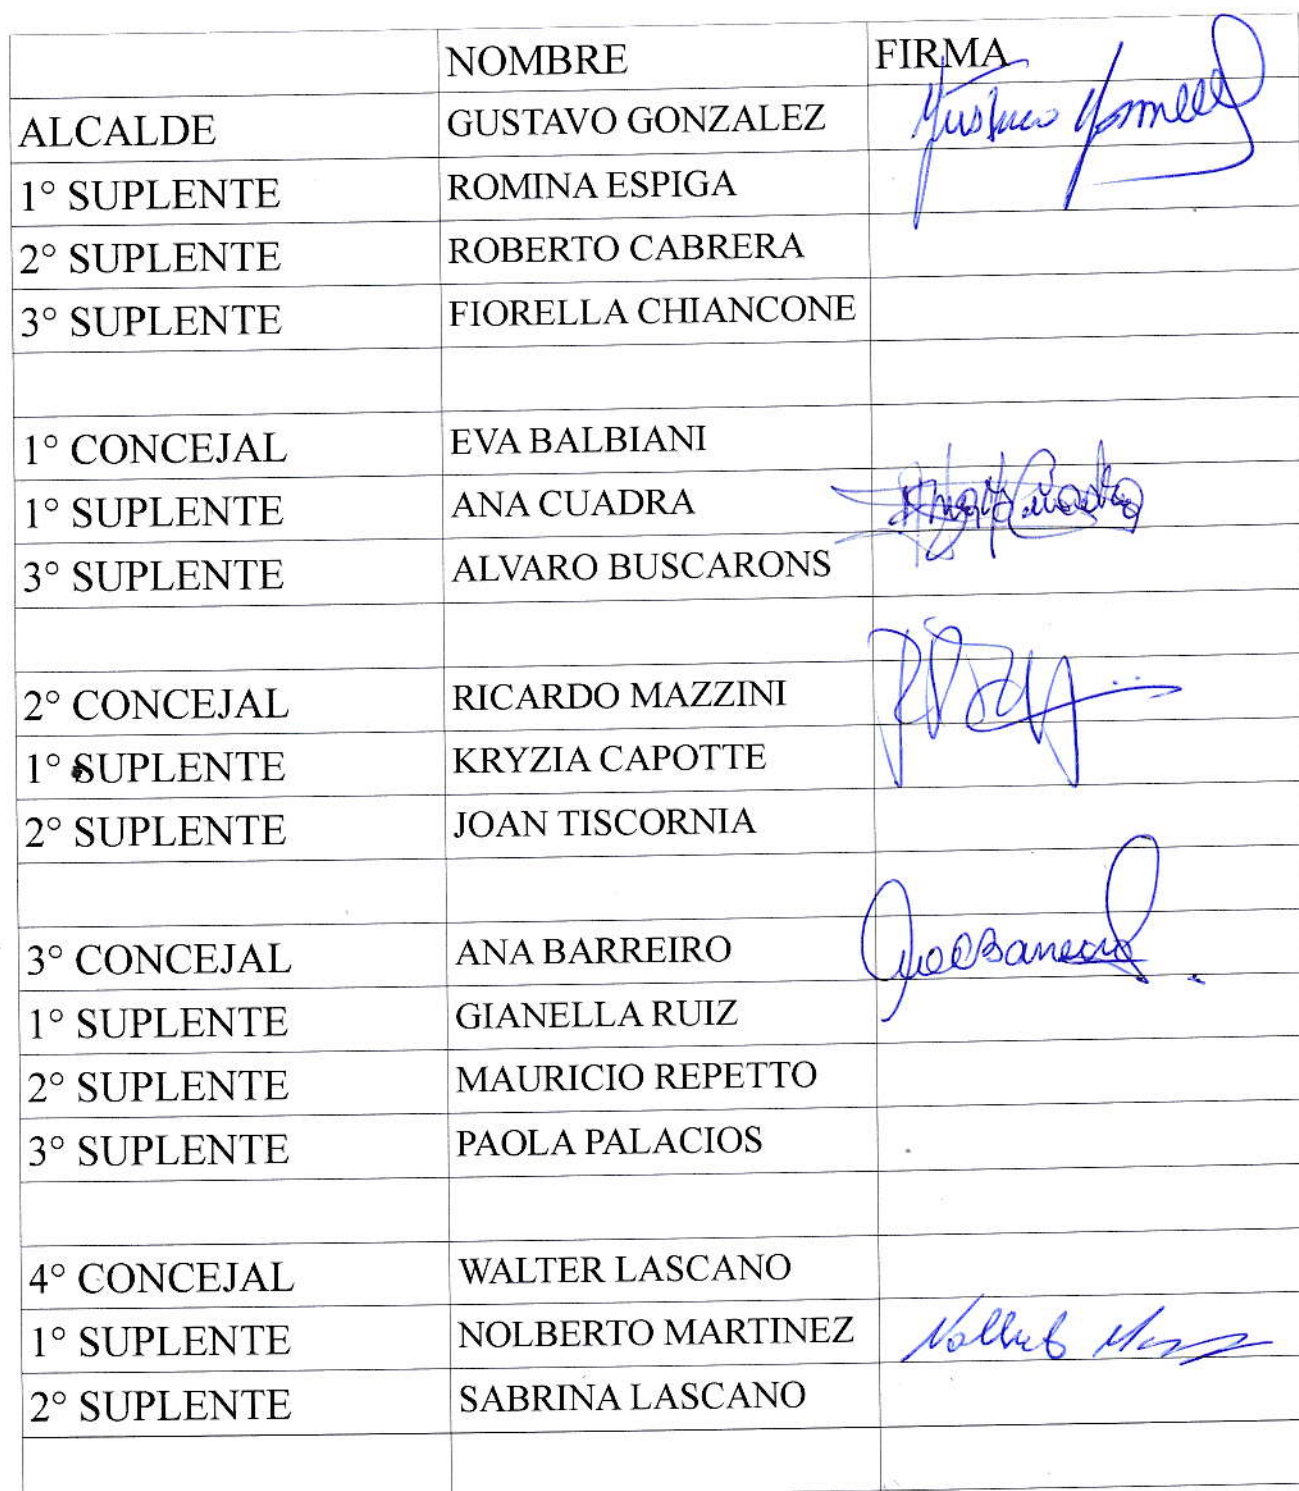 NOMBRE FIRMA
ALCALDE GUSTAVO GONZALEZ Gustavo Gonzalez
1° SUPLENTE ROMINA ESPIGA
2° SUPLENTE ROBERTO CABRERA
3° SUPLENTE FIORELLA CHIANCONE
1° CONCEJAL EVA BALBIANI
1° SUPLENTE ANA CUADRA
3° SUPLENTE ALVARO BUSCARONS
2° CONCEJAL RICARDO MAZZINI
1° SUPLENTE KRYZIA CAPOTTE
2° SUPLENTE JOAN TISCORNIA
3° CONCEJAL ANA BARREIRO Ana Barreiro
1° SUPLENTE GIANELLA RUIZ
2° SUPLENTE MAURICIO REPETTO
3° SUPLENTE PAOLA PALACIOS
4° CONCEJAL WALTER LASCANO
1° SUPLENTE NOLBERTO MARTINEZ Nolberto
2° SUPLENTE SABRINA LASCANO